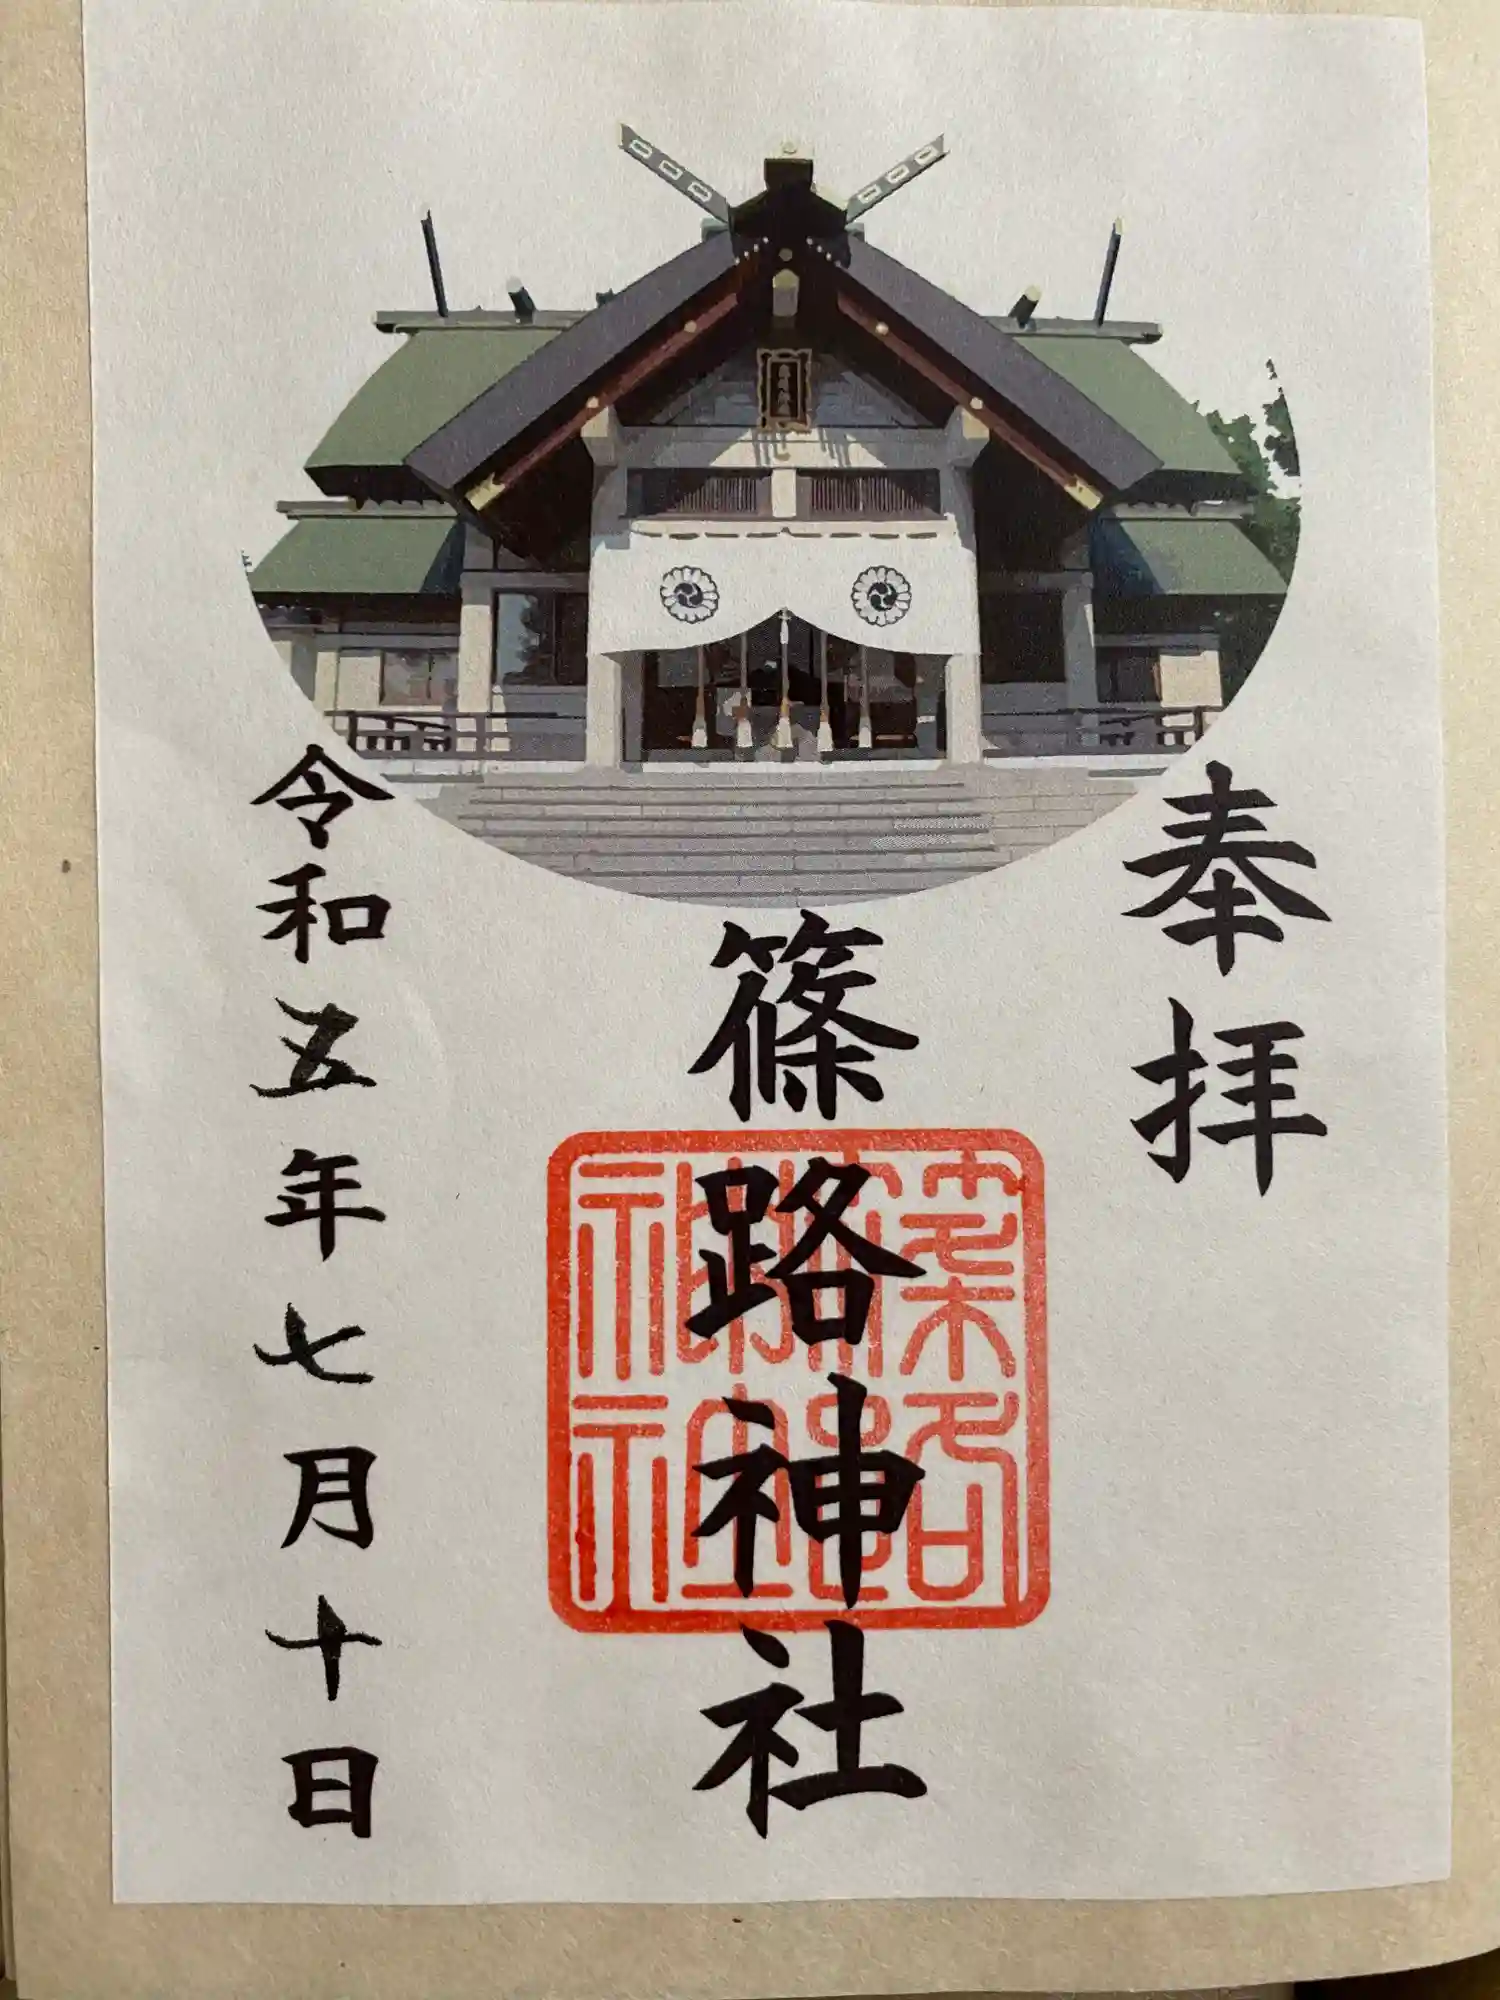 奉拝
篠路神社
令和五年七月十日
篠路
神社